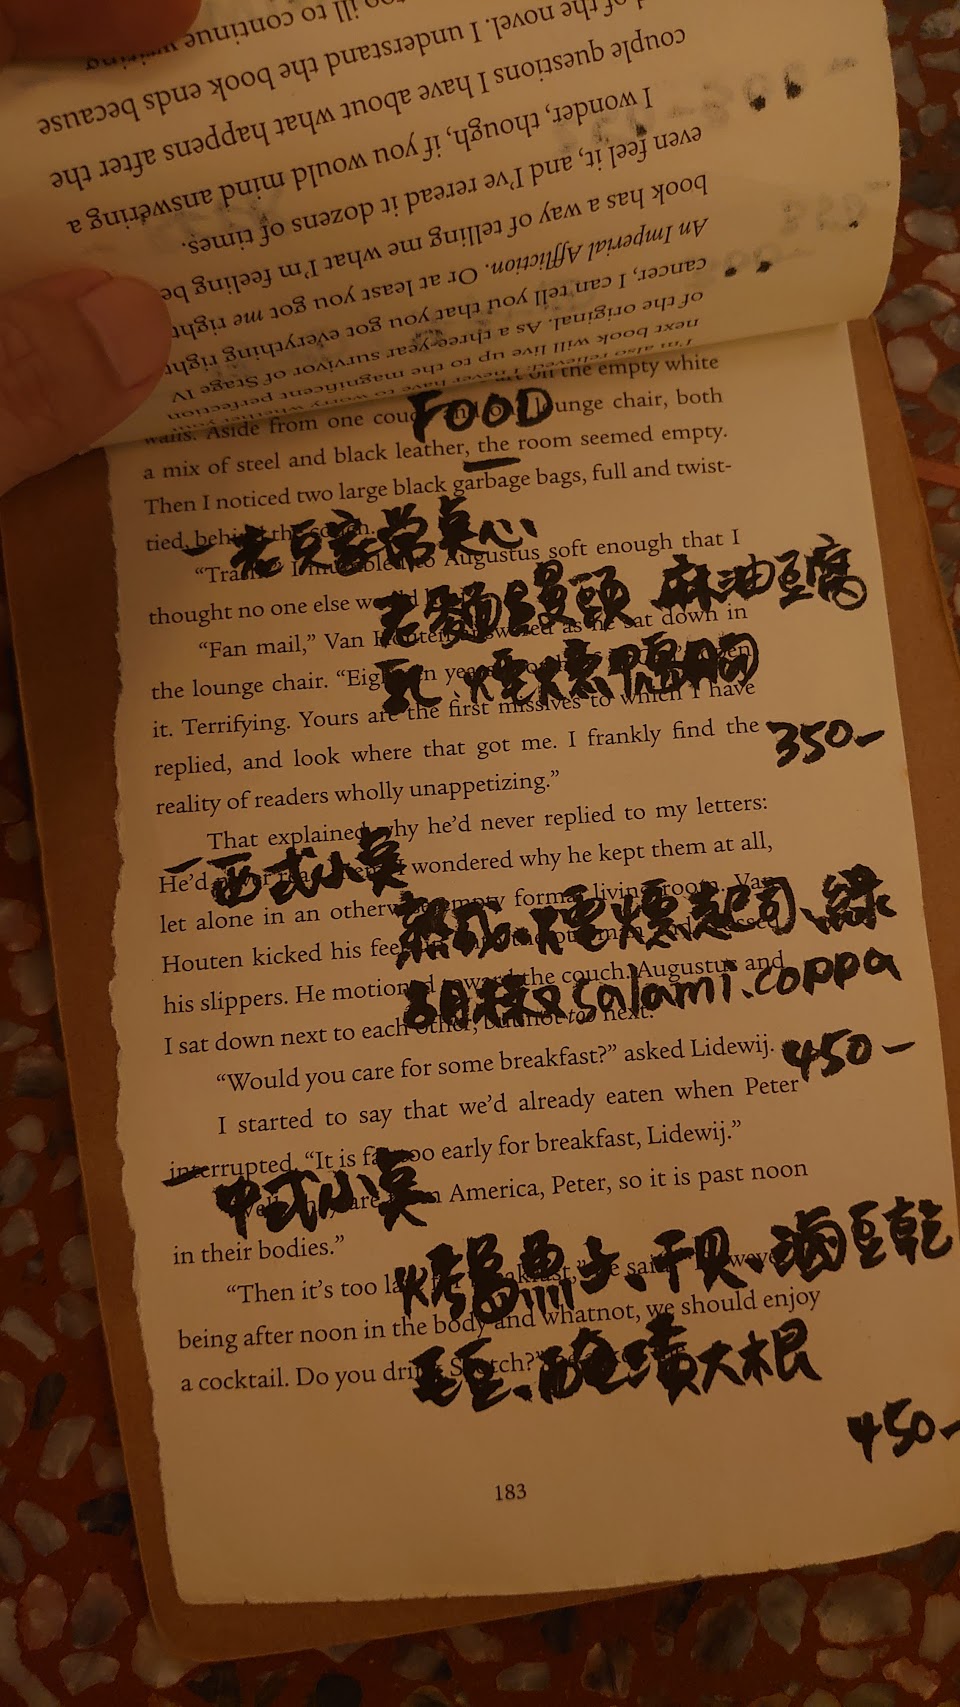 too ill to continue writing
of the novel. I understand the book ends because
couple questions I have about what happens after the
I wonder, though, if you would mind answering a
even feel it, and I've reread it dozens of times.
book has a way of telling me what I'm feeling be
An Imperial Affliction. Or at least you got me right
cancer, I can tell you that you got everything right
of the original. As a three-year survivor of Stage IV
next book will live up to the magnificent perfection
I'm also relieved I never have to worry whether your
on the empty white
FOOD
walls. Aside from one couch and one lounge chair, both
a mix of steel and black leather, the room seemed empty.
Then I noticed two large black garbage bags, full and twist-
tied, behind the couch.
一老豆家常點心
"Trash?" I mumbled to Augustus soft enough that I
thought no one else would
老麵饅頭 麻油豆腐
"Fan mail," Van Houten answered as he sat down in
乳 煙燻鴨胸
the lounge chair. "Eighteen years
it. Terrifying. Yours are the first missives to which I have
350-
replied, and look where that got me. I frankly find the
reality of readers wholly unappetizing."
That explained why he'd never replied to my letters:
一西式小點
He'd never read them. I wondered why he kept them at all,
let alone in an otherwise empty formal living room. Van
熟成、煙燻起司、綠
Houten kicked his feet
his slippers. He motioned toward the couch. Augustus and
胡椒salami、coppa
I sat down next to each other, but not too next.
"Would you care for some breakfast?" asked Lidewij.
450-
I started to say that we'd already eaten when Peter
interrupted. "It is far too early for breakfast, Lidewij."
一中式小點
"Well, they are from America, Peter, so it is past noon
in their bodies."
烤烏魚子、干貝、滷豆乾
"Then it's too late for breakfast," he said. "However,
being after noon in the body and whatnot, we should enjoy
毛豆、醃漬大根
a cocktail. Do you drink Scotch?"
450-
183